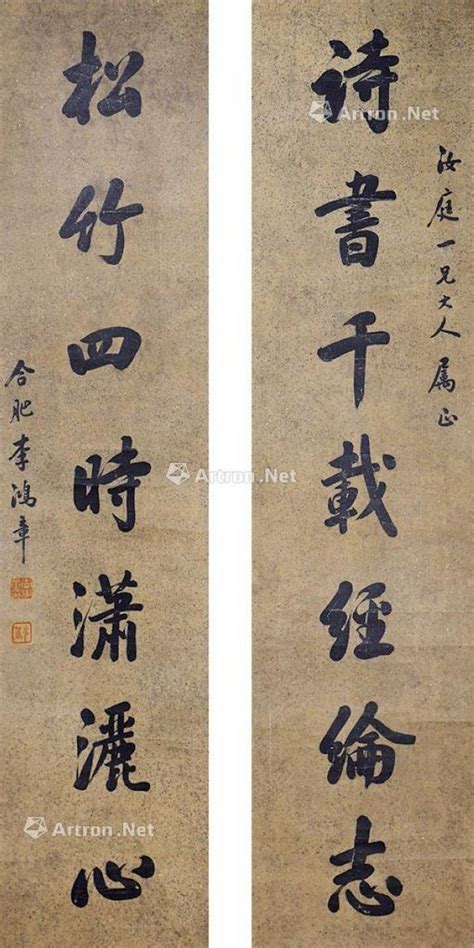 汝庭一兄大人属正
詩書千載經綸志
松竹四時瀟灑心
合肥李鴻章
Artron.Net
Artron.Net
Artron.Net
Artron.Net